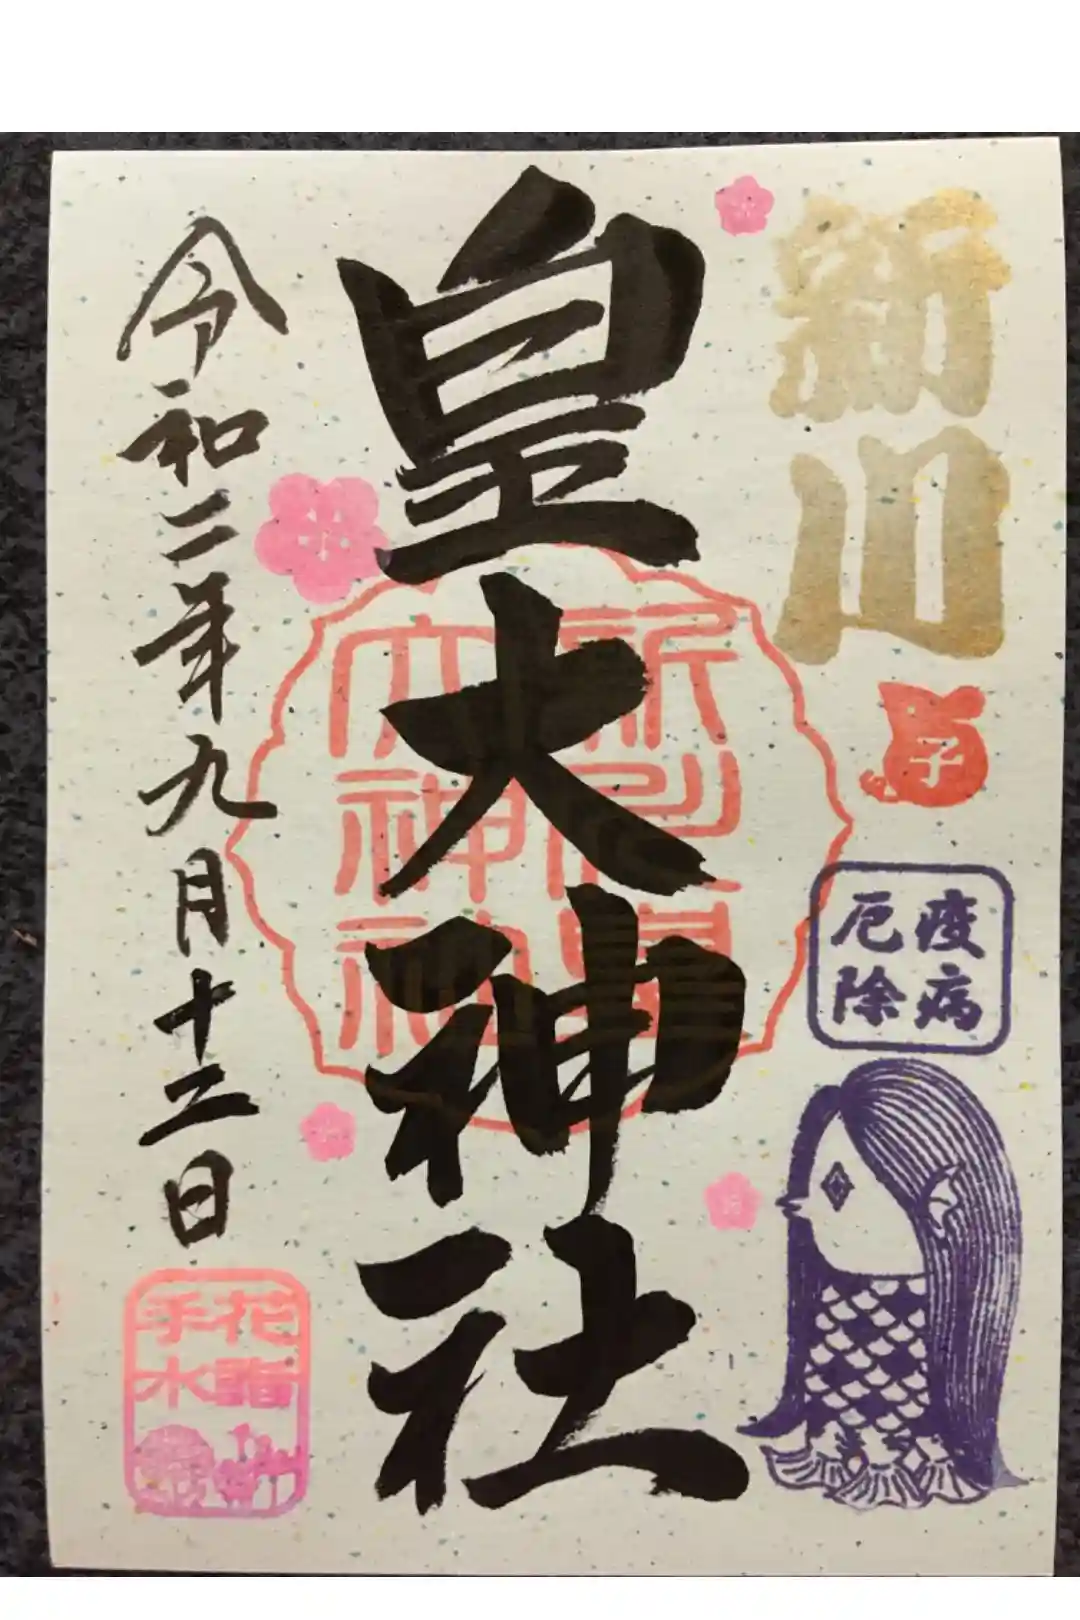 新川
子
疫病
厄除
皇大神社
大神社
令和二年九月十二日
花詣
手水